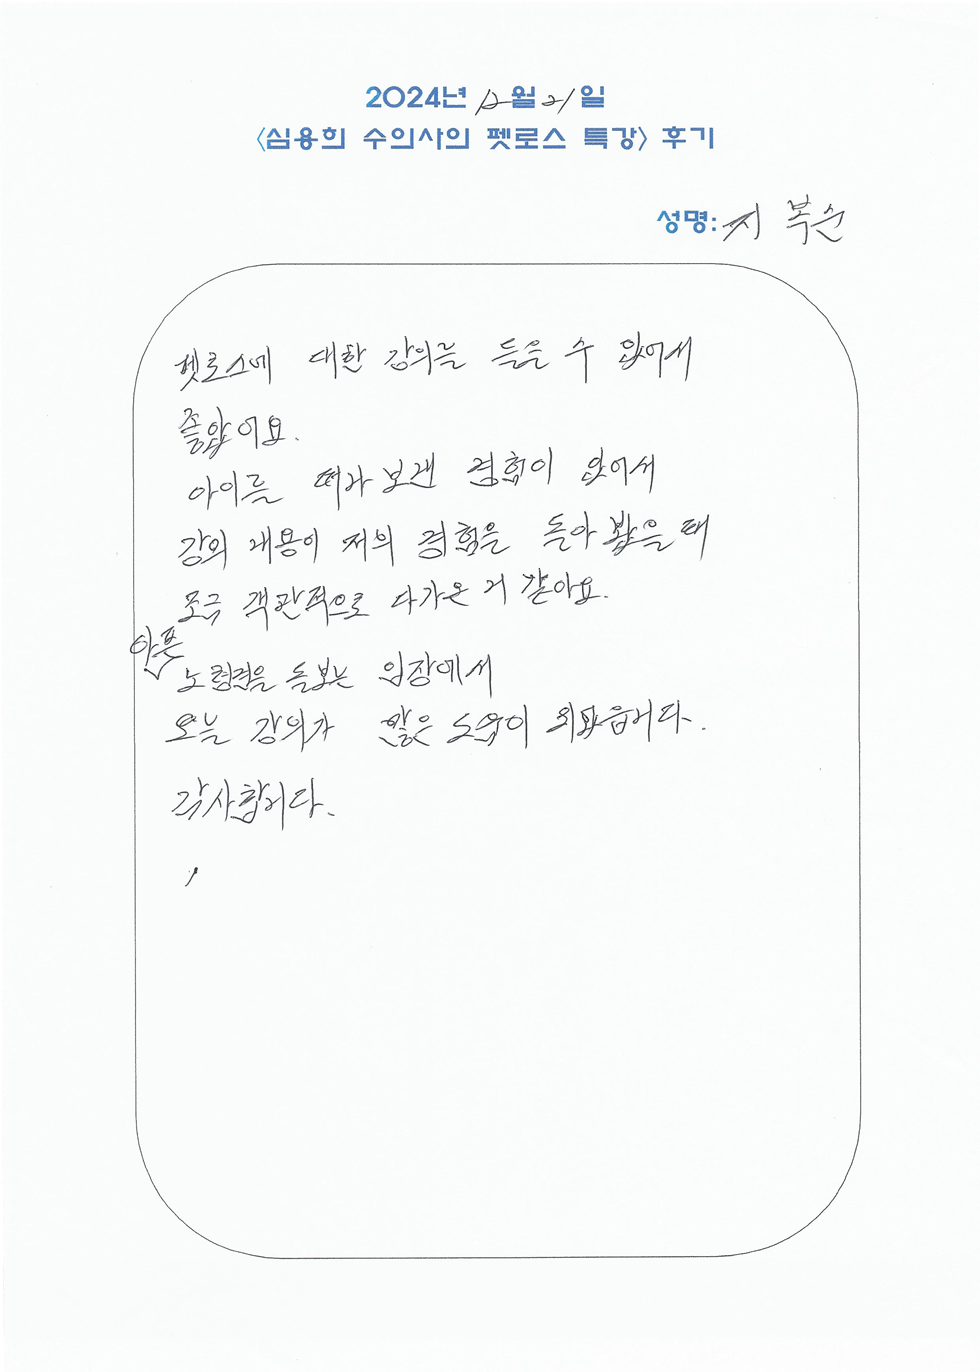 2024년 12월 21일
<심용희 수의사의 펫로스 특강> 후기
성명: 지복순
펫로스에 대한 강의를 들을 수 있어서
좋았어요.
아이를 떠나 보낸 경험이 있어서
강의 내용이 저의 경험을 돌아 봤을 때
조금 객관적으로 다가온 거 같아요.
아픈
노령견을 돌보는 입장에서
오늘 강의가 많은 도움이 되었습니다.
감사합니다.